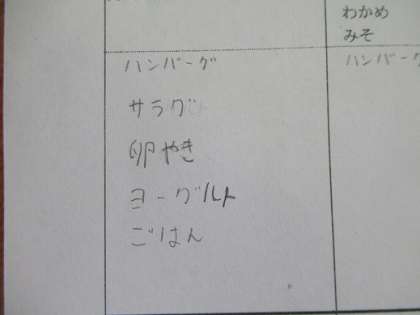 わかめ
みそ
ハンバーグ
サラダ
卵やき
ヨーグルト
ごはん
ハンバーグ